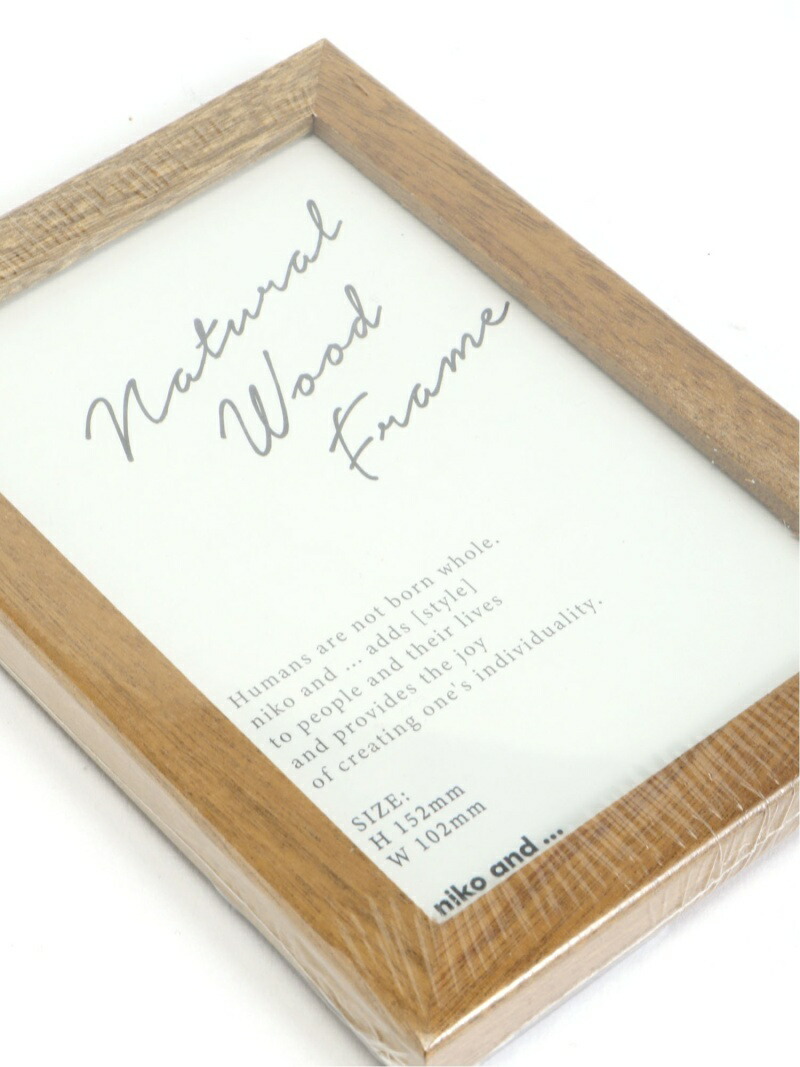 Natural
Wood
Frame
Humans are not born whole.
niko and ... adds [style]
to people and their lives
and provides the joy
of creating one's individuality.
SIZE:
H 152mm
W 102mm
niko and ...